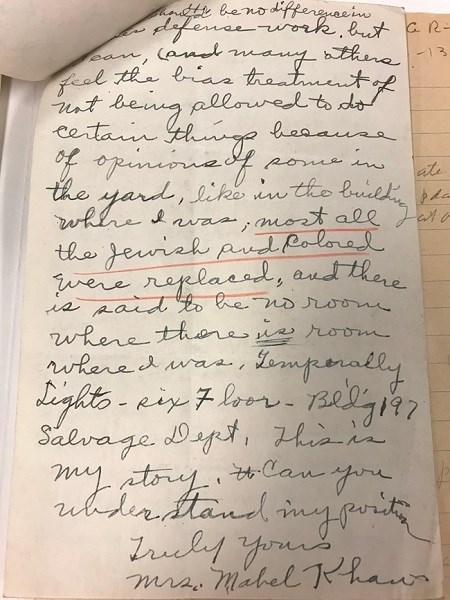 be no difference in
defense work, but
can, (and many others
feel the bias treatment of
not being allowed to do
certain things because
of opinions of some in
the yard, like in the building
where I was, most all
the Jewish and Colored
were replaced, and there
is said to be no room
where there is room
where I was. Temporally
Lights - six 7 loor - Bldg 197
Salvage Dept. This is
my story. Can you
under stand my position
Truly yours
Mrs. Mabel Khaw
G R-
-13
ate